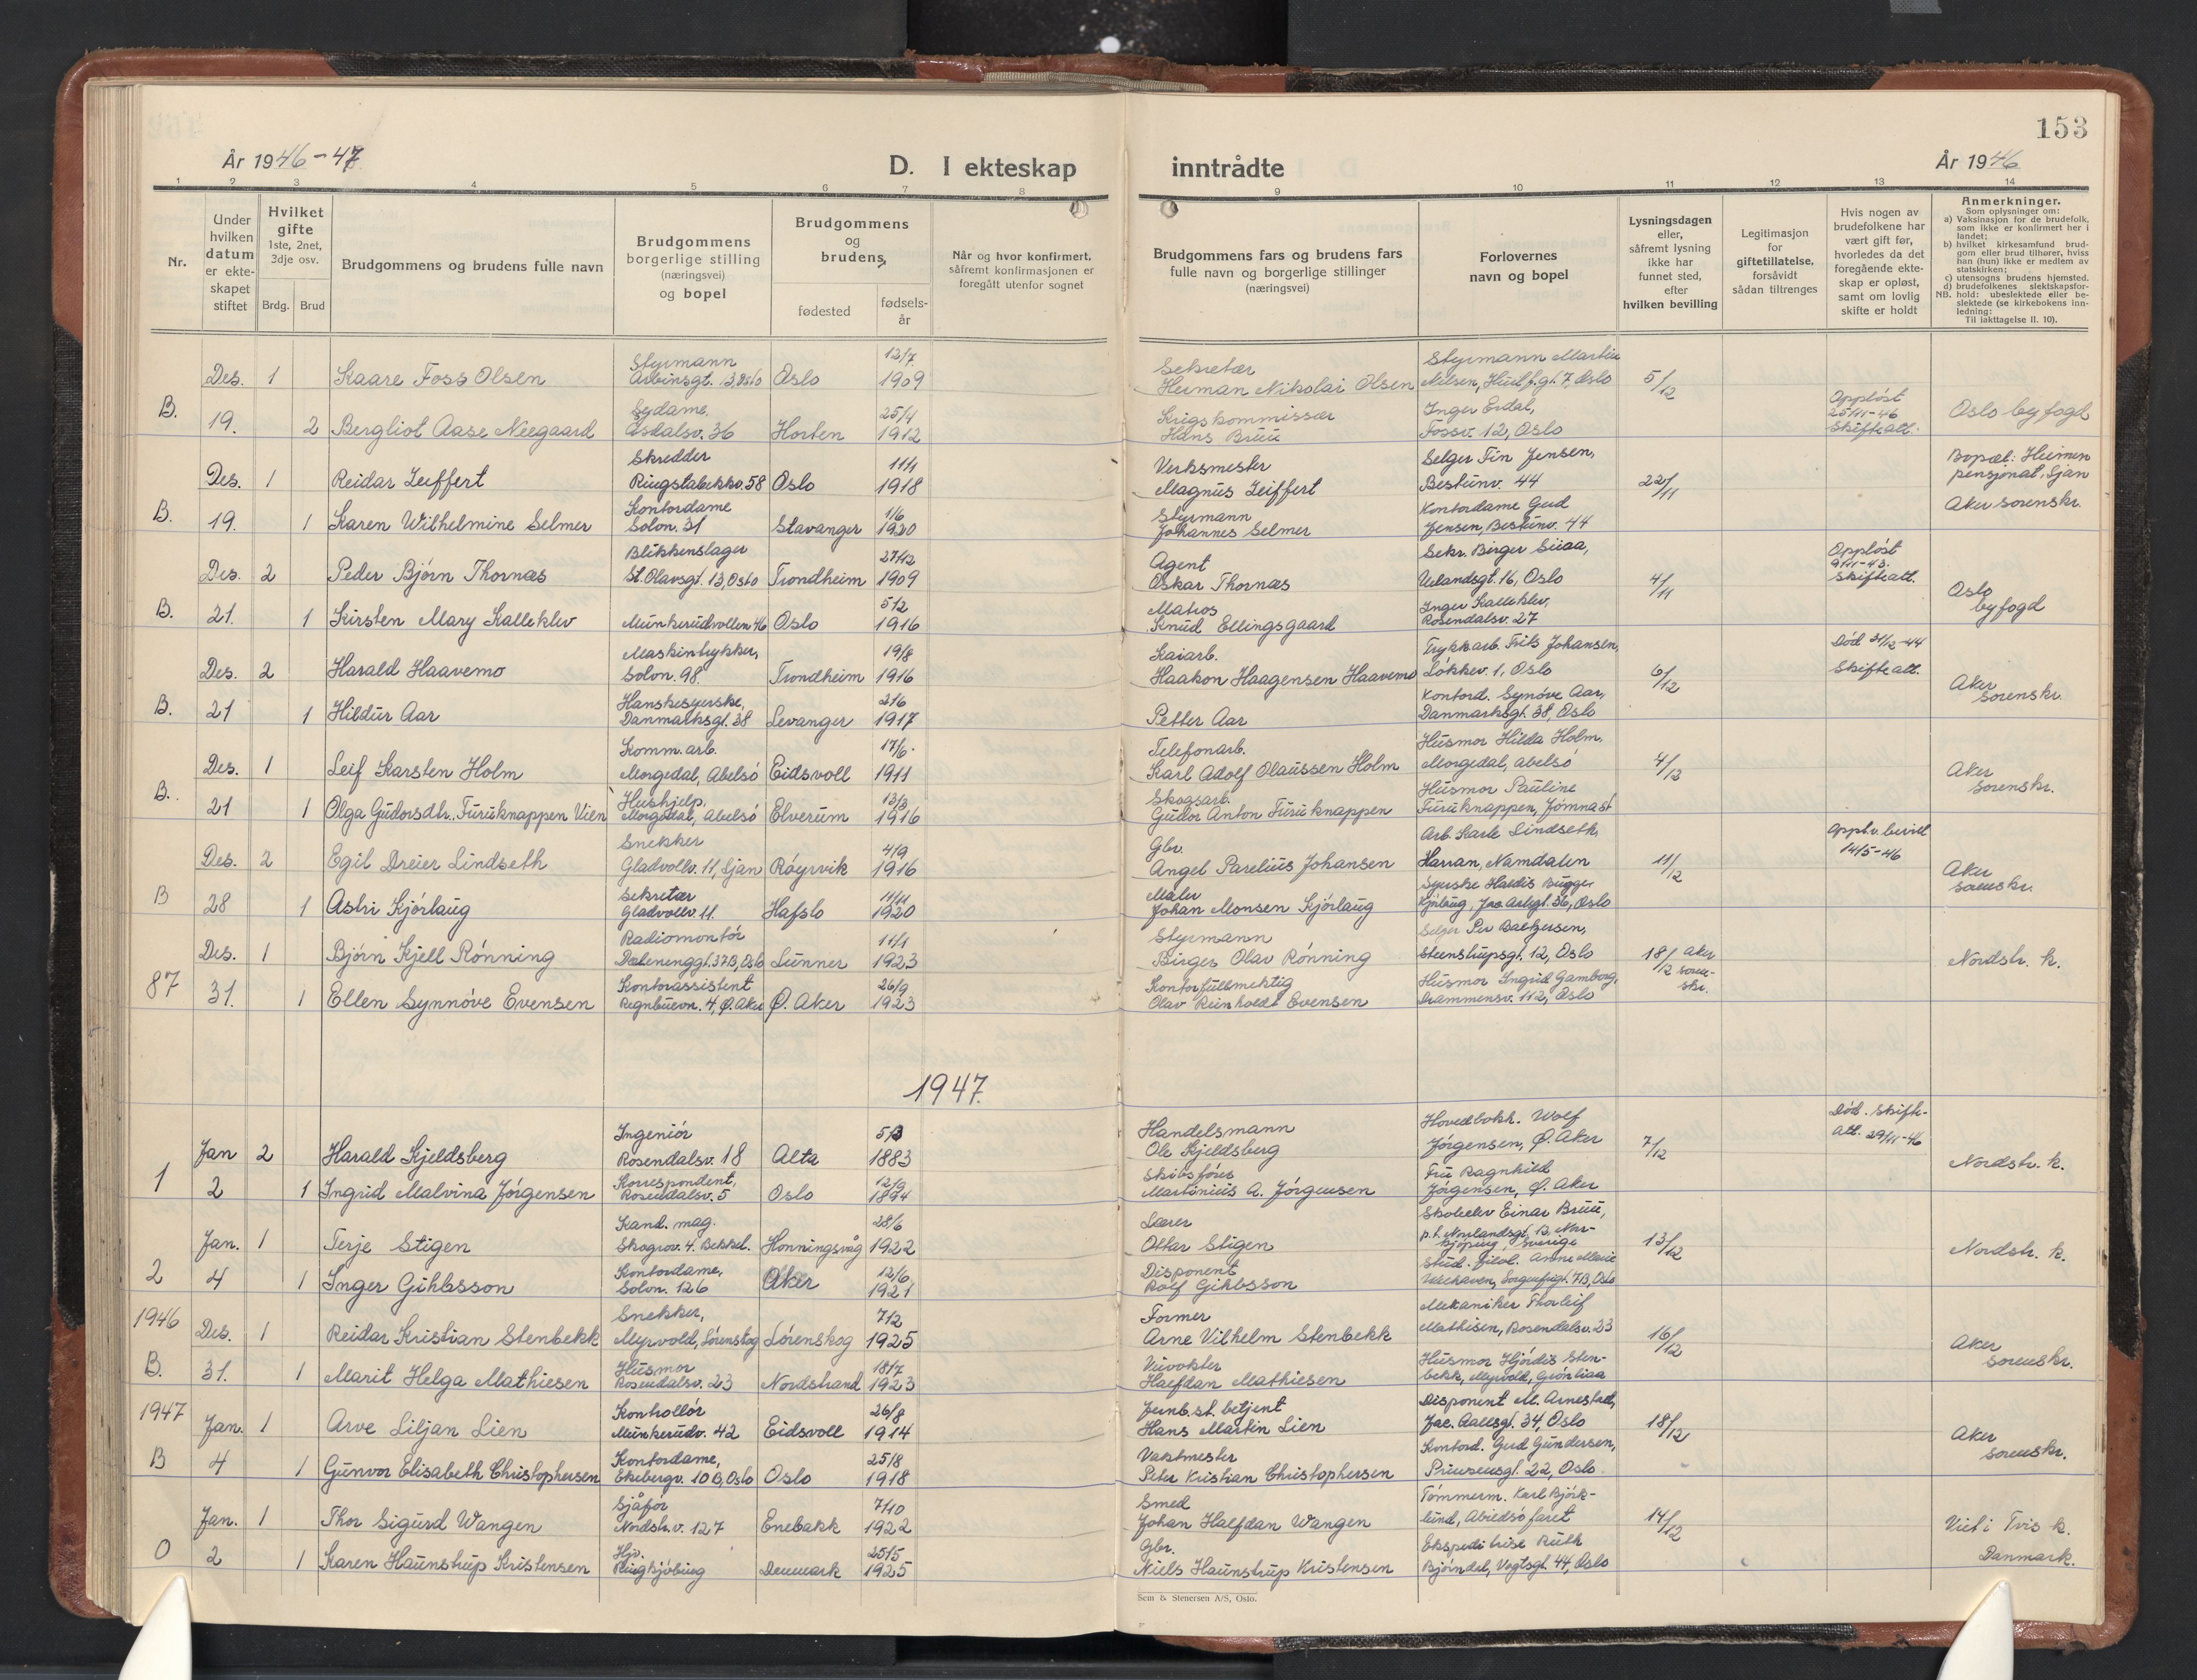 153
År 1946-47
D. I ekteskap
inntrådte
År 1946
1 2 3 4 5 6 7 8 9 10 11 12 13 14
Nr.
Under
hvilken
datum
er ekte-
skapet
stiftet
Hvilket
gifte
1ste, 2net,
3dje osv.
Brdg.
Brud
Brudgommens og brudens fulle navn
Brudgommens
borgerlige stilling
(næringsvei)
og bopel
Brudgommens
og
brudens
fødested
fødsels-
år
Når og hvor konfirmert,
såfremt konfirmasjonen er
foregått utenfor sognet
Brudgommens fars og brudens fars
fulle navn og borgerlige stillinger
(næringsvei)
Forlovernes
navn og bopel
Lysningsdagen
eller,
såfremt lysning
ikke har
funnet sted,
efter
hvilken bevilling
Legitimasjon
for
giftetillatelse,
forsåvidt
sådan tiltrenges
Hvis nogen av
brudefolkene har
vært gift før,
hvorledes da det
foregående ekte-
skap er opløst,
samt om lovlig
skifte er holdt
Anmerkninger.
Som oplysninger om:
a) Vaksinasjon for de brudefolk,
som ikke er konfirmert her i
landet;
b) hvilket kirkesamfund brud-
gom eller brud tilhører, hviss
han (hun) ikke er medlem av
statskirken;
c) utensogns brudens hjemsted.
d) brudefolkenes slektskapsfor-
NB. hold: ubeslektede eller be-
slektede (se kirkebokens inn-
ledning:
Til iakttagelse II. 10).
Des. 1 Kaare Foss Olsen Styrmann Arbinsgt. 13, Oslo Oslo 12/7 1909 Sekretær Herman Nikolai Olsen Styrmann Martin Nilsen, Huitf.gt. 7, Oslo 5/12
B. 19. 2 Bergliot Aase Neegaard Sydame. Åsdalsv. 36 Horten 25/4 1912 Krigskommissær Hans Bruu Inger Erdal, Fossv. 12, Oslo Oppløst 25/11-46 Skifte att. Oslo byfogd
Des. 1 Reidar Zeiffert Skredder Ringstabekkv. 58 Oslo 11/1 1918 Verksmester Magnus Zeiffert Selger Fin Jensen, Bestumv. 44 22/11 Bopæl: Heimen pensjonat, Ljan
B. 19. 1 Karen Wilhelmine Selmer Kontordame Solvn. 31 Stavanger 1/6 1920 Styrmann Johannes Selmer Kontordame Gud Jensen, Bestumv. 44 Aker sorenskr.
Des. 2 Peder Bjørn Thornæs Blikkenslager St. Olavsgt. 13, Oslo Trondheim 27/12 1909 Agent Oskar Thornæs Sekr. Birger Siiaa, Uelandsgt. 16, Oslo 4/11 Oppløst 9/11-43. Skifte att.
B. 21. 1 Kirsten Mary Kalleklev Munkerudvollen 46 Oslo 5/2 1916 Matros Knud Ellingsgaard Inger Kalleklev, Rosendalsv. 27 Oslo byfogd
Des. 2 Harald Haavemo Maskintrykker, Solvn. 98. Trondheim 19/8 1916 Kaiarb. Haakon Haagensen Haavemo Trykkarb. Frits Johansen, Løkkev. 1, Oslo 6/12 Død 31/12-44 Skifte att.
B. 21 1 Hildur Aar Hanskesyerske, Danmarksgt. 38 Levanger 21/6 1917 Petter Aar Kontord. Synøve Aar, Danmarksgt. 38, Oslo Aker sorenskr.
Des. 1 Leif Karsten Holm Komm. arb. Morgedal, Abelsø Eidsvoll 17/6 1911 Telefonarb. Karl Adolf Olaussen Holm Husmor Hilda Holm, Morgedal, Abelsø 4/12
B. 21 1 Olga Gudorsdtr. Furuknappen Vien Hushjelp, Morgedal, Abelsø Elverum 13/3 1916 Skogsarb. Gudor Anton Furuknappen Husmor Pauline Furuknappen, Jømnast Aker sorenskr.
Des. 2 Egil Dreier Lindseth Snekker Gladvollv. 11, Ljan Røyrvik 4/9 1916 Gbr. Angel Parelius Johansen Arb. Karle Lindseth, Harran, Namdalen 11/12 Oppl. v. bevill 14/5-46
B 28 1 Astri Kjørlaug Sekretær Gladvollv. 11. Hafslo 11/11 1920 Maler Johan Monsen Kjørlaug Syerske Haldis Bugge Kjørlaug, Jac. Aallsgt. 36, Oslo Aker sorenskr.
Des. 1 Bjørn Kjell Rønning Radiomontør Dælenenggt. 37B, Oslo Lunner 11/1 1923 Styrmann Birger Olav Rønning Selger Per Baltzersen, Steenstrupsgt. 12, Oslo 18/12 Aker soren- skr. Nordstr. k.
87 31. 1 Ellen Synnøve Evensen Kontorassistent Regnbuevn. 4, Ø. Aker Ø. Aker 26/9 1923 Kontorfullmektig Olav Reinholdt Evensen Husmor Ingrid Gamborg, Drammensv. 112, Oslo
1947.
Jan 2 Harald Kjeldsberg Ingeniør Rosendalsv. 18 Alta 5/3 1883 Handelsmann Ole Kjeldsberg Hovedbokh. Wolf Jørgensen, Ø. Aker 7/12 Død. Skifte- att. 29/11-46
1 2 1 Ingrid Malvina Jørgensen Korrespondent, Rosendalsv. 5 Oslo 12/9 1894 Skibsfører Martinius A. Jørgensen Fru Ragnhild Jørgensen, Ø. Aker Nordstr. k.
Jan. 1 Terje Stigen Kand. mag. Skogrov. 4. Bekkel. Honningsvåg 28/6 1922 Lærer Ottar Stigen Skoleelev Einar Bruu, p.t. Norlandsgt. B. Nor- kjøping, Sverige 13/12
2 4 1 Inger Gihbsson Kontordame, Solvn. 126 Aker 12/6 1921 Disponent Rolf Gihbsson Stud. filol. Anne Marie Welhaven, Sorgenfrigt. 7B, Oslo Nordstr. k.
1946 Des. 1 Reidar Kristian Stenbekk Snekker, Myrvold, Lørenskog Lørenskog 7/2 1925 Former Arne Vilhelm Stenbekk Mekaniker Thorleif Mathisen, Rosendalsv. 23 16/12
B. 31. 1 Marit Helga Mathiesen Husmor Rosendalsv. 23 Nordstrand 18/7 1923 Halfdan Mathiesen Husmor Hjørdis Sten- bekk, Myrvold, Aker sorenskr.
1947 Jan. 1 Arve Liljan Lien Kontrollør Munkerudv. 42 Eidsvoll 26/8 1914 Jernb.st. betjent Hans Martin Lien Disponent M. Arnestad, Jac. Aallsgt. 34, Oslo 18/12
B 4 1 Gunvor Elisabeth Christophersen Kontordame, Ekebergv. 10 B, Oslo Oslo 25/8 1918 Vaktmester Peter Kristian Christophersen Kontord. Gud Gundersen, Prinsensgt. 22, Oslo. Aker sorenskr.
Jan. 1 Thor Sigurd Wangen Sjåfør Nordstr. v. 127 Enebakk 7/10 1922 Smed Johan Halfdan Wangen Tømmerm. Karl Bjørk- lund, Abildsøfaret 14/12
0 2 1 Karen Haunstrup Kristensen Hjv. Ringkjøbing Denmark 25/5 1925 Gbr. Niels Haunstrup Kristensen Ekspeditrise Ruth Bjørndal, Vogtsgt. 44, Oslo Viet i Tvis k. Danmark.
Sem & Stenersen A/S, Oslo.